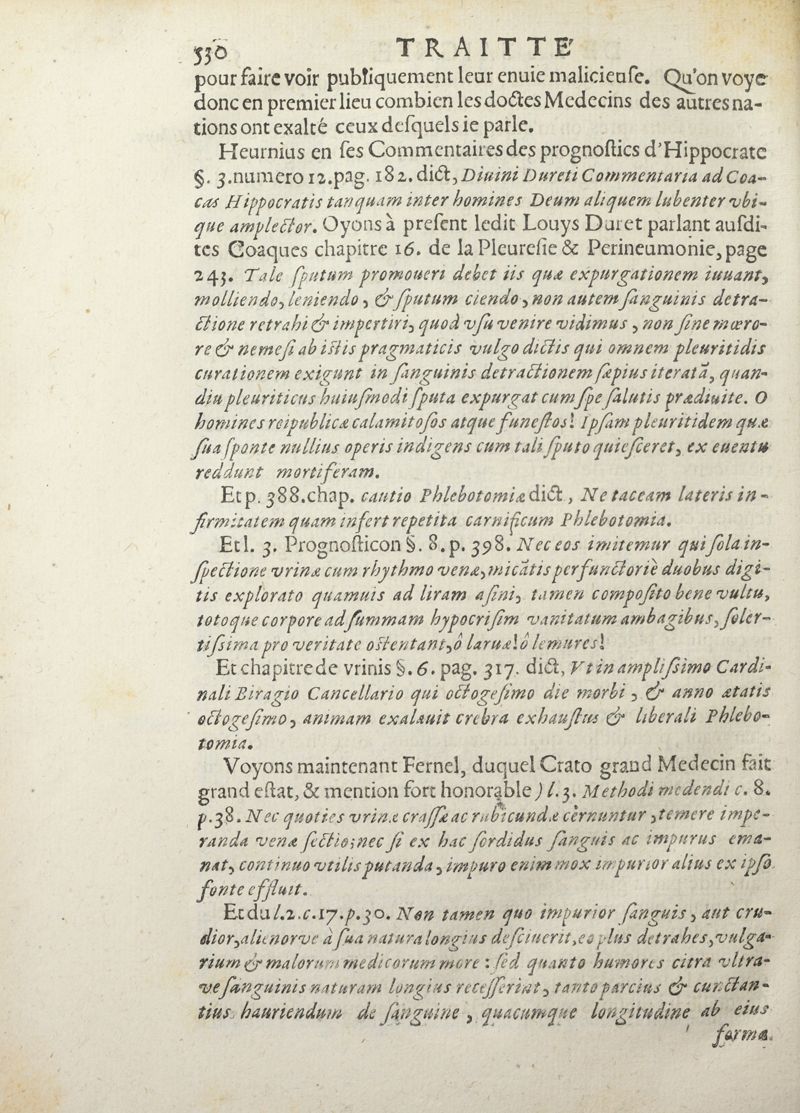 530 TRAITTE'
pour faire voir publiquement leur enuie malicieuſe. Qu'on voye
donc en premier lieu combien les doctes Medecins des autres na-
tions ont exalté ceux deſquels ie parle.
Heurnius en ſes Commentaires des prognoſtics d'Hippocrate
§. 3.numero 12.pag. 182. dict, Diuini Dureti Commentaria ad Coa-
cas Hippocratis tanquam inter homines Deum aliquem lubenter vbi-
que amplector. Oyons à preſent ledit Louys Duret parlant auſdi-
tes Coaques chapitre 16. de la Pleureſie & Perineumonie, page
243. Tale ſputum promoueri debet iis quæ expurgationem iuuant,
molliendo, leniendo, & ſputum ciendo, non autem ſanguinis detra-
ctione retrahi & impertiri, quod vſu venire vidimus, non ſine mœro-
re & nemeſi ab iſtis pragmaticis vulgo dictis qui omnem pleuritidis
curationem exigunt in ſanguinis detractionem ſæpius iteratā, quan-
diu pleuriticus huiuſmodi ſputa expurgat cum ſpe ſalutis prædiuite. O
homines reipublicæ calamitoſos atque funeſtos! Ipſam pleuritidem quæ
ſua ſponte nullius operis indigens cum tali ſputo quieſceret, ex euentu
reddunt mortiferam.
Et p. 388.chap. cautio Phlebotomiæ dict, Ne taceam lateris in-
firmitatem quam infert repetita carnificum Phlebotomia.
Et l. 3. Prognoſticon §. 8. p. 398. Nec eos imitemur qui ſola in-
ſpectione vrinæ cum rhythmo venæ, micātis perfunctorie duobus digi-
tis explorato quamuis ad liram aſini, tamen compoſito bene vultu,
totoque corpore ad ſummam hypocriſim vanitatum ambagibus, ſoler-
tiſsima pro veritate oſtentant, ô laruæ! ô lemures!
Et chapitre de vrinis §. 6. pag. 317. dict, Vt in ampliſsimo Cardi-
nali Biragio Cancellario qui octogeſimo die morbi, & anno ætatis
octogeſimo, animam exalauit crebra exhauſtus & liberali Phlebo-
tomia.
Voyons maintenant Fernel, duquel Crato grand Medecin fait
grand eſtat, & mention fort honorable) l. 3. Methodi medendi c. 8.
p. 38. Nec quoties vrinæ craſſæ ac rubicundæ cernuntur, temere impe-
randa venæ ſectio; nec ſi ex hac ſordidus ſanguis ac impurus ema-
nat, continuo vtilis putanda, impuro enim mox impurior alius ex ipſo
fonte effluit.
Et du l.2.c.17.p.30. Non tamen quo impurior ſanguis, aut cru-
dior, alienorve à ſua natura longius deſciuerit, eo plus detrahes, vulga-
rium & malorum medicorum more : ſed quanto humores citra vltra-
ve ſanguinis naturam longius receſſerint, tanto parcius & cunctan-
tius hauriendum de ſanguine, quacumque longitudine ab eius
forma.